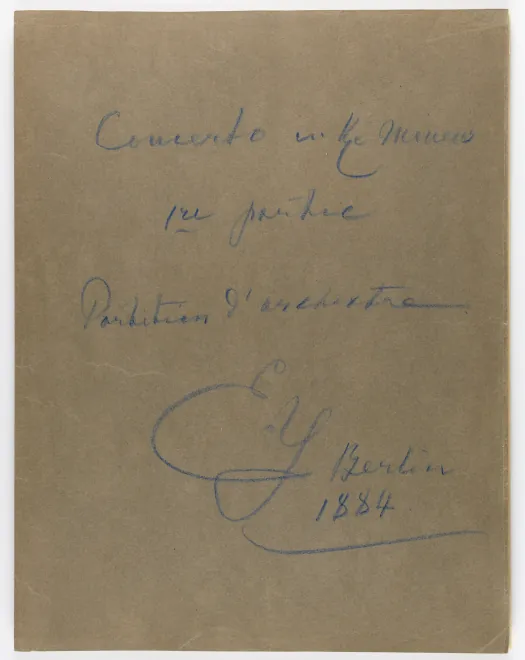 Concerto en Ré Mineur
1re partie
Partition d'orchestre
EY Berlin
1884